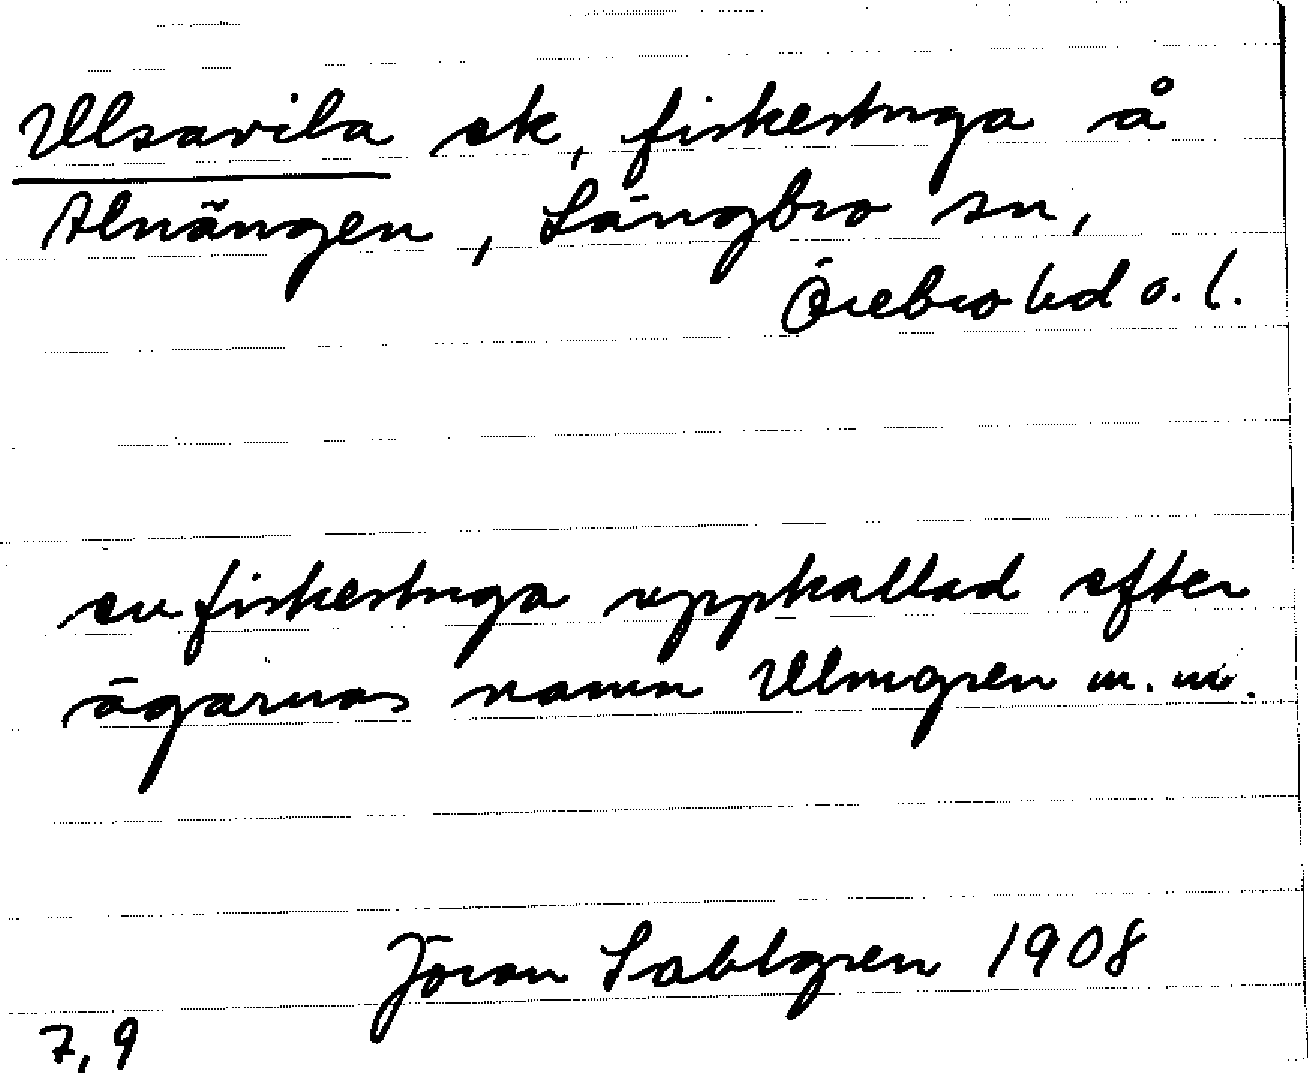 Ulsavila ek, fiskestuga å
Alnängen, Längbro sn,
Örebro hd o. l.
en fiskestuga uppkallad efter
ägarnas namn Ulmgren m. m.
Jöran Sahlgren 1908
7,9